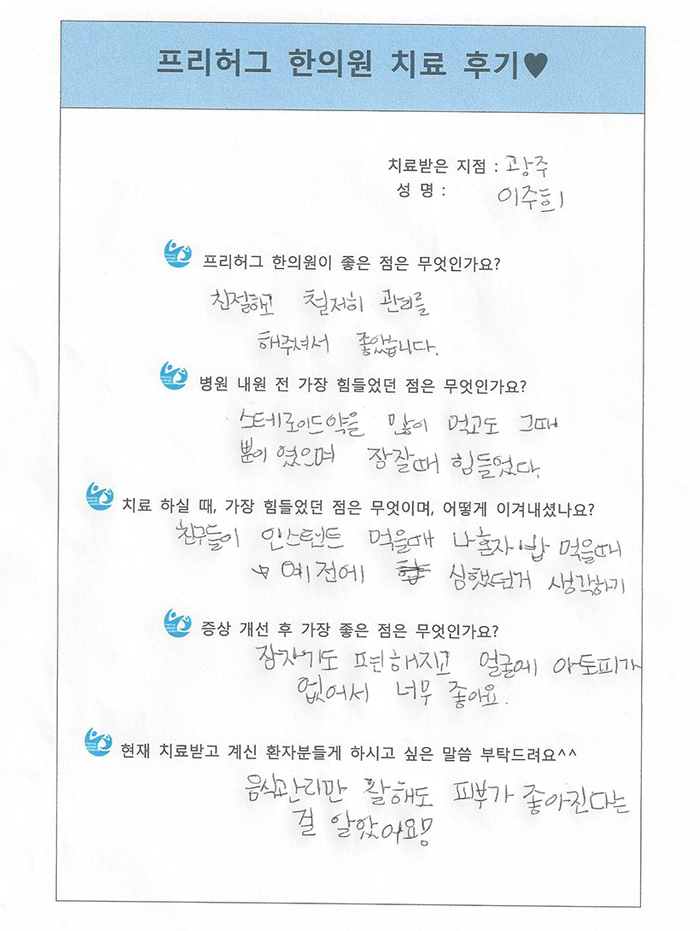 프리허그 한의원 치료 후기♥
치료받은 지점 : 광주
성 명 : 이주희
프리허그 한의원이 좋은 점은 무엇인가요?
친절하고 철저히 관리를
해주셔서 좋았습니다.
병원 내원 전 가장 힘들었던 점은 무엇인가요?
스테로이드약을 많이 먹고도 그때
뿐이였으며 잠잘때 힘들었다.
치료 하실 때, 가장 힘들었던 점은 무엇이며, 어떻게 이겨내셨나요?
친구들이 인스턴트 먹을때 나혼자 밥 먹을때
예전에 심했던거 생각하기
증상 개선 후 가장 좋은 점은 무엇인가요?
잠자기도 편해지고 얼굴에 아토피가
없어서 너무 좋아요.
현재 치료받고 계신 환자분들게 하시고 싶은 말씀 부탁드려요^^
음식관리만 잘해도 피부가 좋아진다는
걸 알았어요!